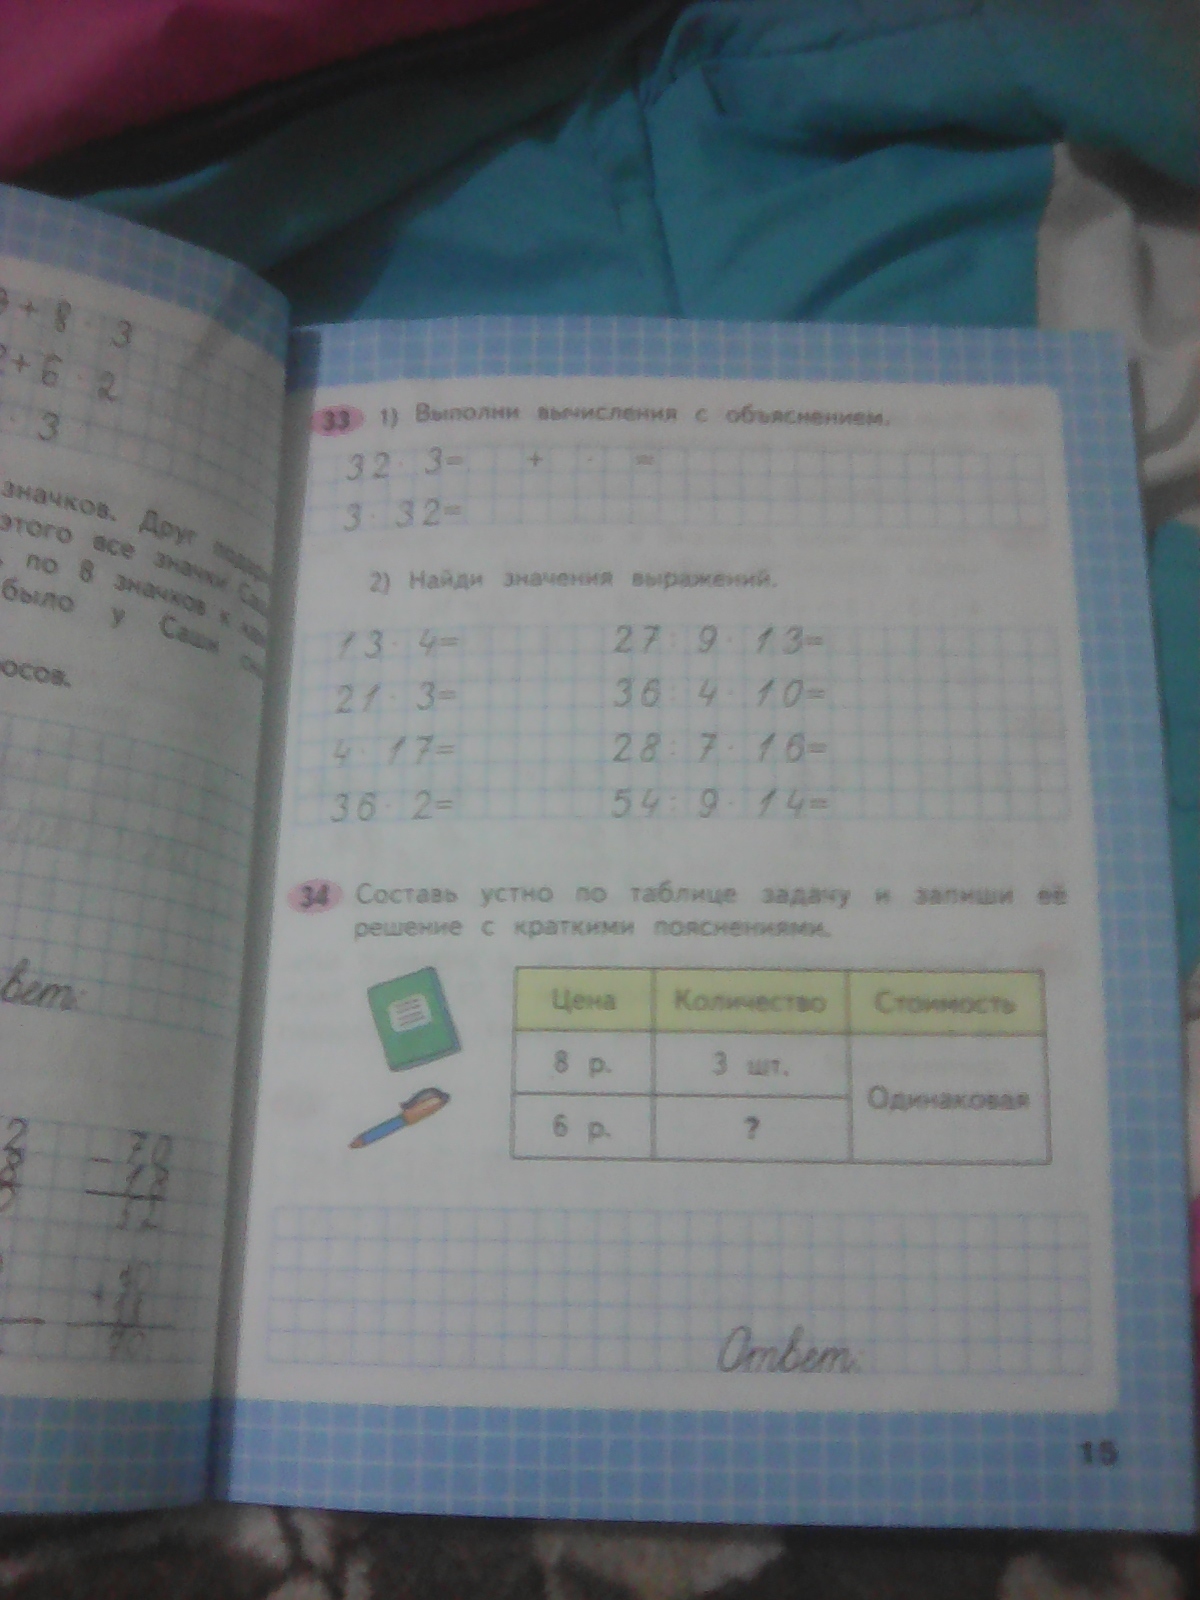 3 + 8 · 3
2+6 · 2
· 3
значков. Друг
этого все значки
по 8 значков к
было у Саши
осов.
вет:
2 - 70
8 18
52
33 1) Выполни вычисления с объяснением.
32 · 3= + · =
3 · 32=
2) Найди значения выражений.
13 · 4= 27 : 9 · 13=
21 · 3= 36 : 4 · 10=
4 · 17= 28 : 7 · 16=
36 · 2= 54 : 9 · 14=
34 Составь устно по таблице задачу и запиши её
решение с краткими пояснениями.
Цена Количество Стоимость
8 р. 3 шт. Одинаковая
6 р. ?
Ответ:
15